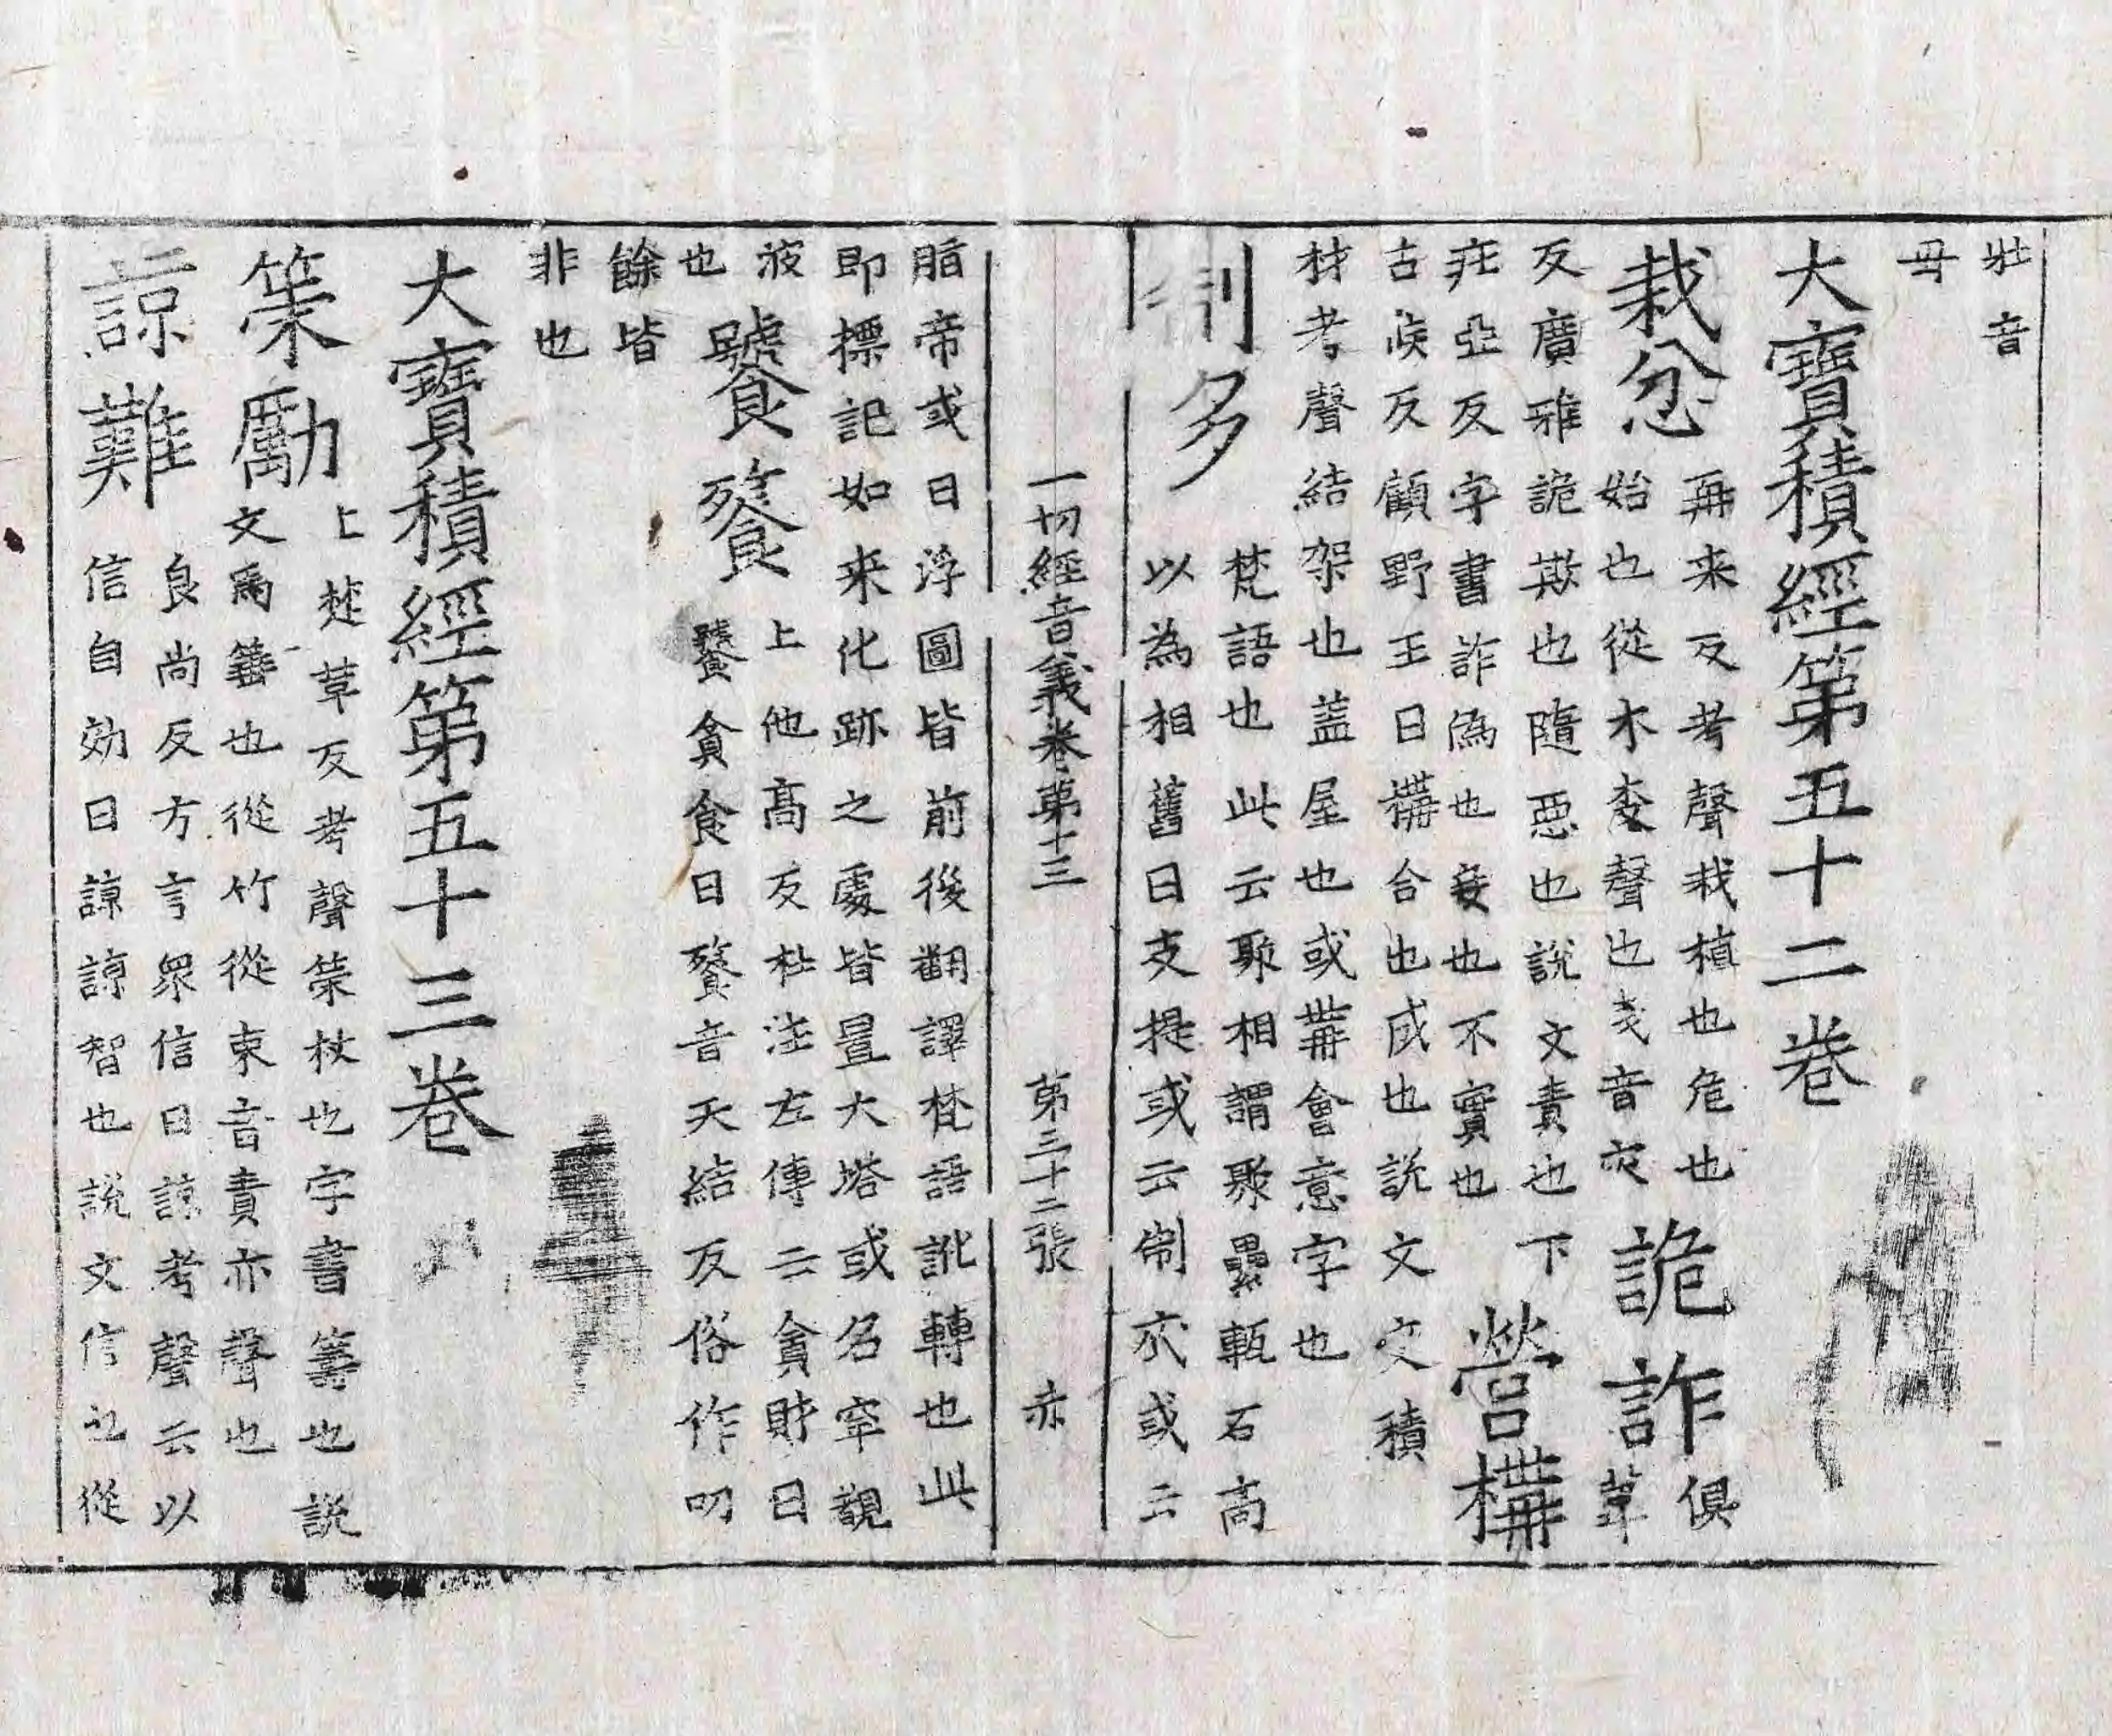 壯音
母
大寶積經第五十二卷
栽忿
再来反考聲栽植也危也
始也從木𢦏聲也𢦏音灾
詭詐
俱葦
反廣雅詭欺也隨惡也說文責也下
庄亞反字書詐偽也妄也不實也
營構
古候反顧野王曰構合也成也說文交積
材考聲結架也蓋屋也或冓會意字也
制多
梵語也此云聚相謂聚壘甎石高
以為相舊曰支提或云制底或云
一切經音義卷第十三 第三十二張 赤
脂帝或曰浮圖皆前後翻譯梵語訛轉也此
即標記如来化跡之處皆置大塔或名窣覩
波也
饕餮
上他高反杜注左傳云貪財曰
饕貪食曰餮音天結反俗作叨
餘皆
非也
大寶積經第五十三卷
策勵
上楚革反考聲策杖也字書籌也說
文馬箠也從竹從朿音責亦聲也
諒難
良尚反方言眾信曰諒考聲云以
信自効曰諒諒智也說文信也從